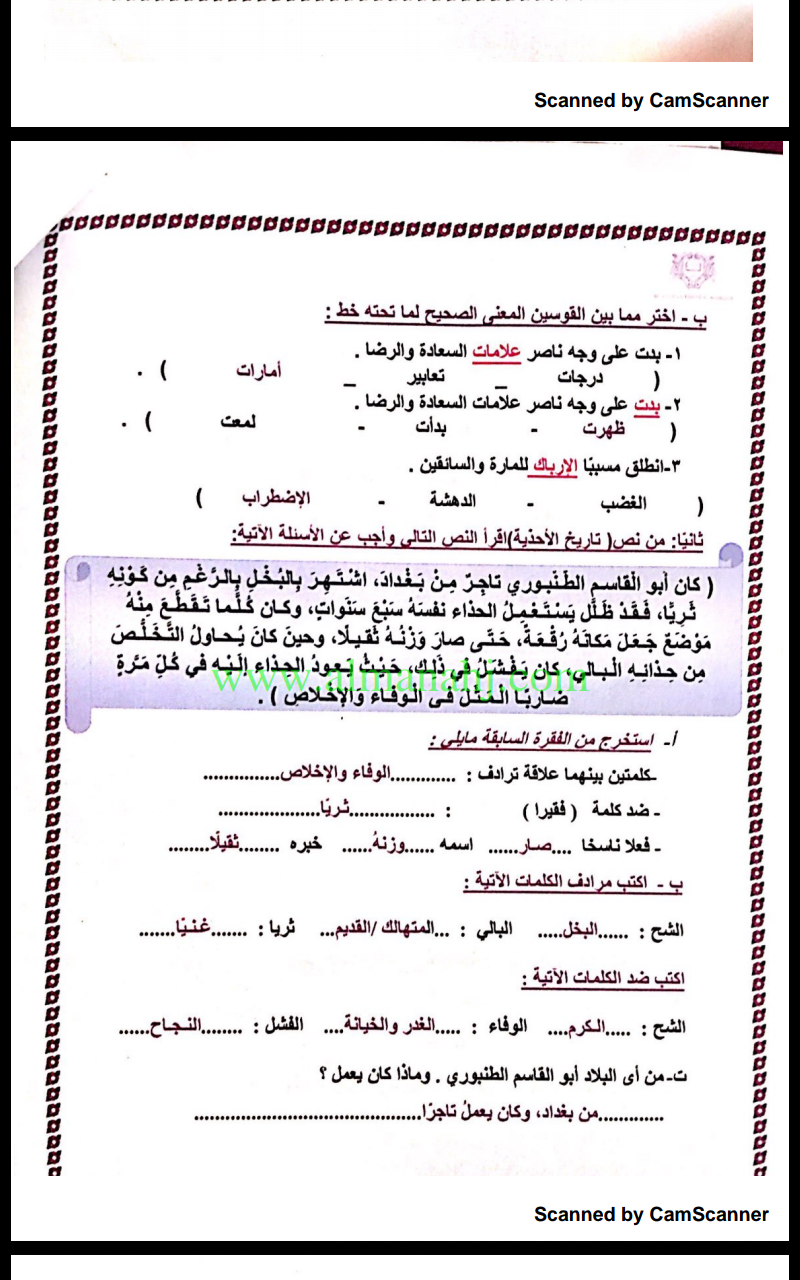 Scanned by CamScanner
ب - اختر مما بين القوسين المعنى الصحيح لما تحته خط :
١- بدت على وجه ناصر علامات السعادة والرضا .
( درجات _ تعابير _ أمارات ) .
٢- بدت على وجه ناصر علامات السعادة والرضا .
( ظهرت - بدأت - لمعت ) .
٣-انطلق مسببًا الإرباك للمارة والسائقين .
( الغضب - الدهشة - الإضطراب )
ثانيًا: من نص( تاريخ الأحذية)اقرأ النص التالي وأجب عن الأسئلة الآتية:
( كان أبو القاسم الطَنْبوري تاجِرٌ مِنْ بَغْدادَ، اشْتَهِرَ بِالبُخْلِ بِالرَّغْمِ مِن كَوْنِهِ
ثَرِيًّا، فَقَدْ ظَلَّ يَسْتَعْمِلُ الحذاء نفسَهُ سَبْعَ سَنَواتٍ، وكان كُلَّما تَقَطَّعَ مِنْهُ
مَوْضَعٌ جَعَلَ مَكانَهُ رُقْعَةً، حَتَّى صارَ وَزْنُهُ ثَقيلًا، وحينَ كانَ يُحاولُ التَّخَلُّصَ
مِن حِذائِهِ الْبالي كان يَفْشَلُ في ذَلِكَ، حَيْثُ يَعودُ الحِذاء الَيْهِ في كُلِّ مَرَّةٍ
www.almanahj.com
ضاربًا الْمَثَلَ في الْوَفاءِ وَالإخْلاصِ ) .
أ- استخرج من الفقرة السابقة مايلي :
-كلمتين بينهما علاقة ترادف : .............الوفاء والإخلاص...............
- ضد كلمة ( فقيرا ) : .................ثريًا....................
- فعلا ناسخا ....صار...... اسمه ......وزنهُ...... خبره ........ثقيلًا........
ب - اكتب مرادف الكلمات الآتية :
الشح : ......البخل..... البالي : ...المتهالك /القديم... ثريا : .......غنيًا.......
اكتب ضد الكلمات الآتية :
الشح : .....الكرم.... الوفاء : .....الغدر والخيانة.... الفشل : ........النجاح......
ت-من أى البلاد أبو القاسم الطنبوري . وماذا كان يعمل ؟
.............من بغداد، وكان يعملُ تاجرًا.............................................
Scanned by CamScanner